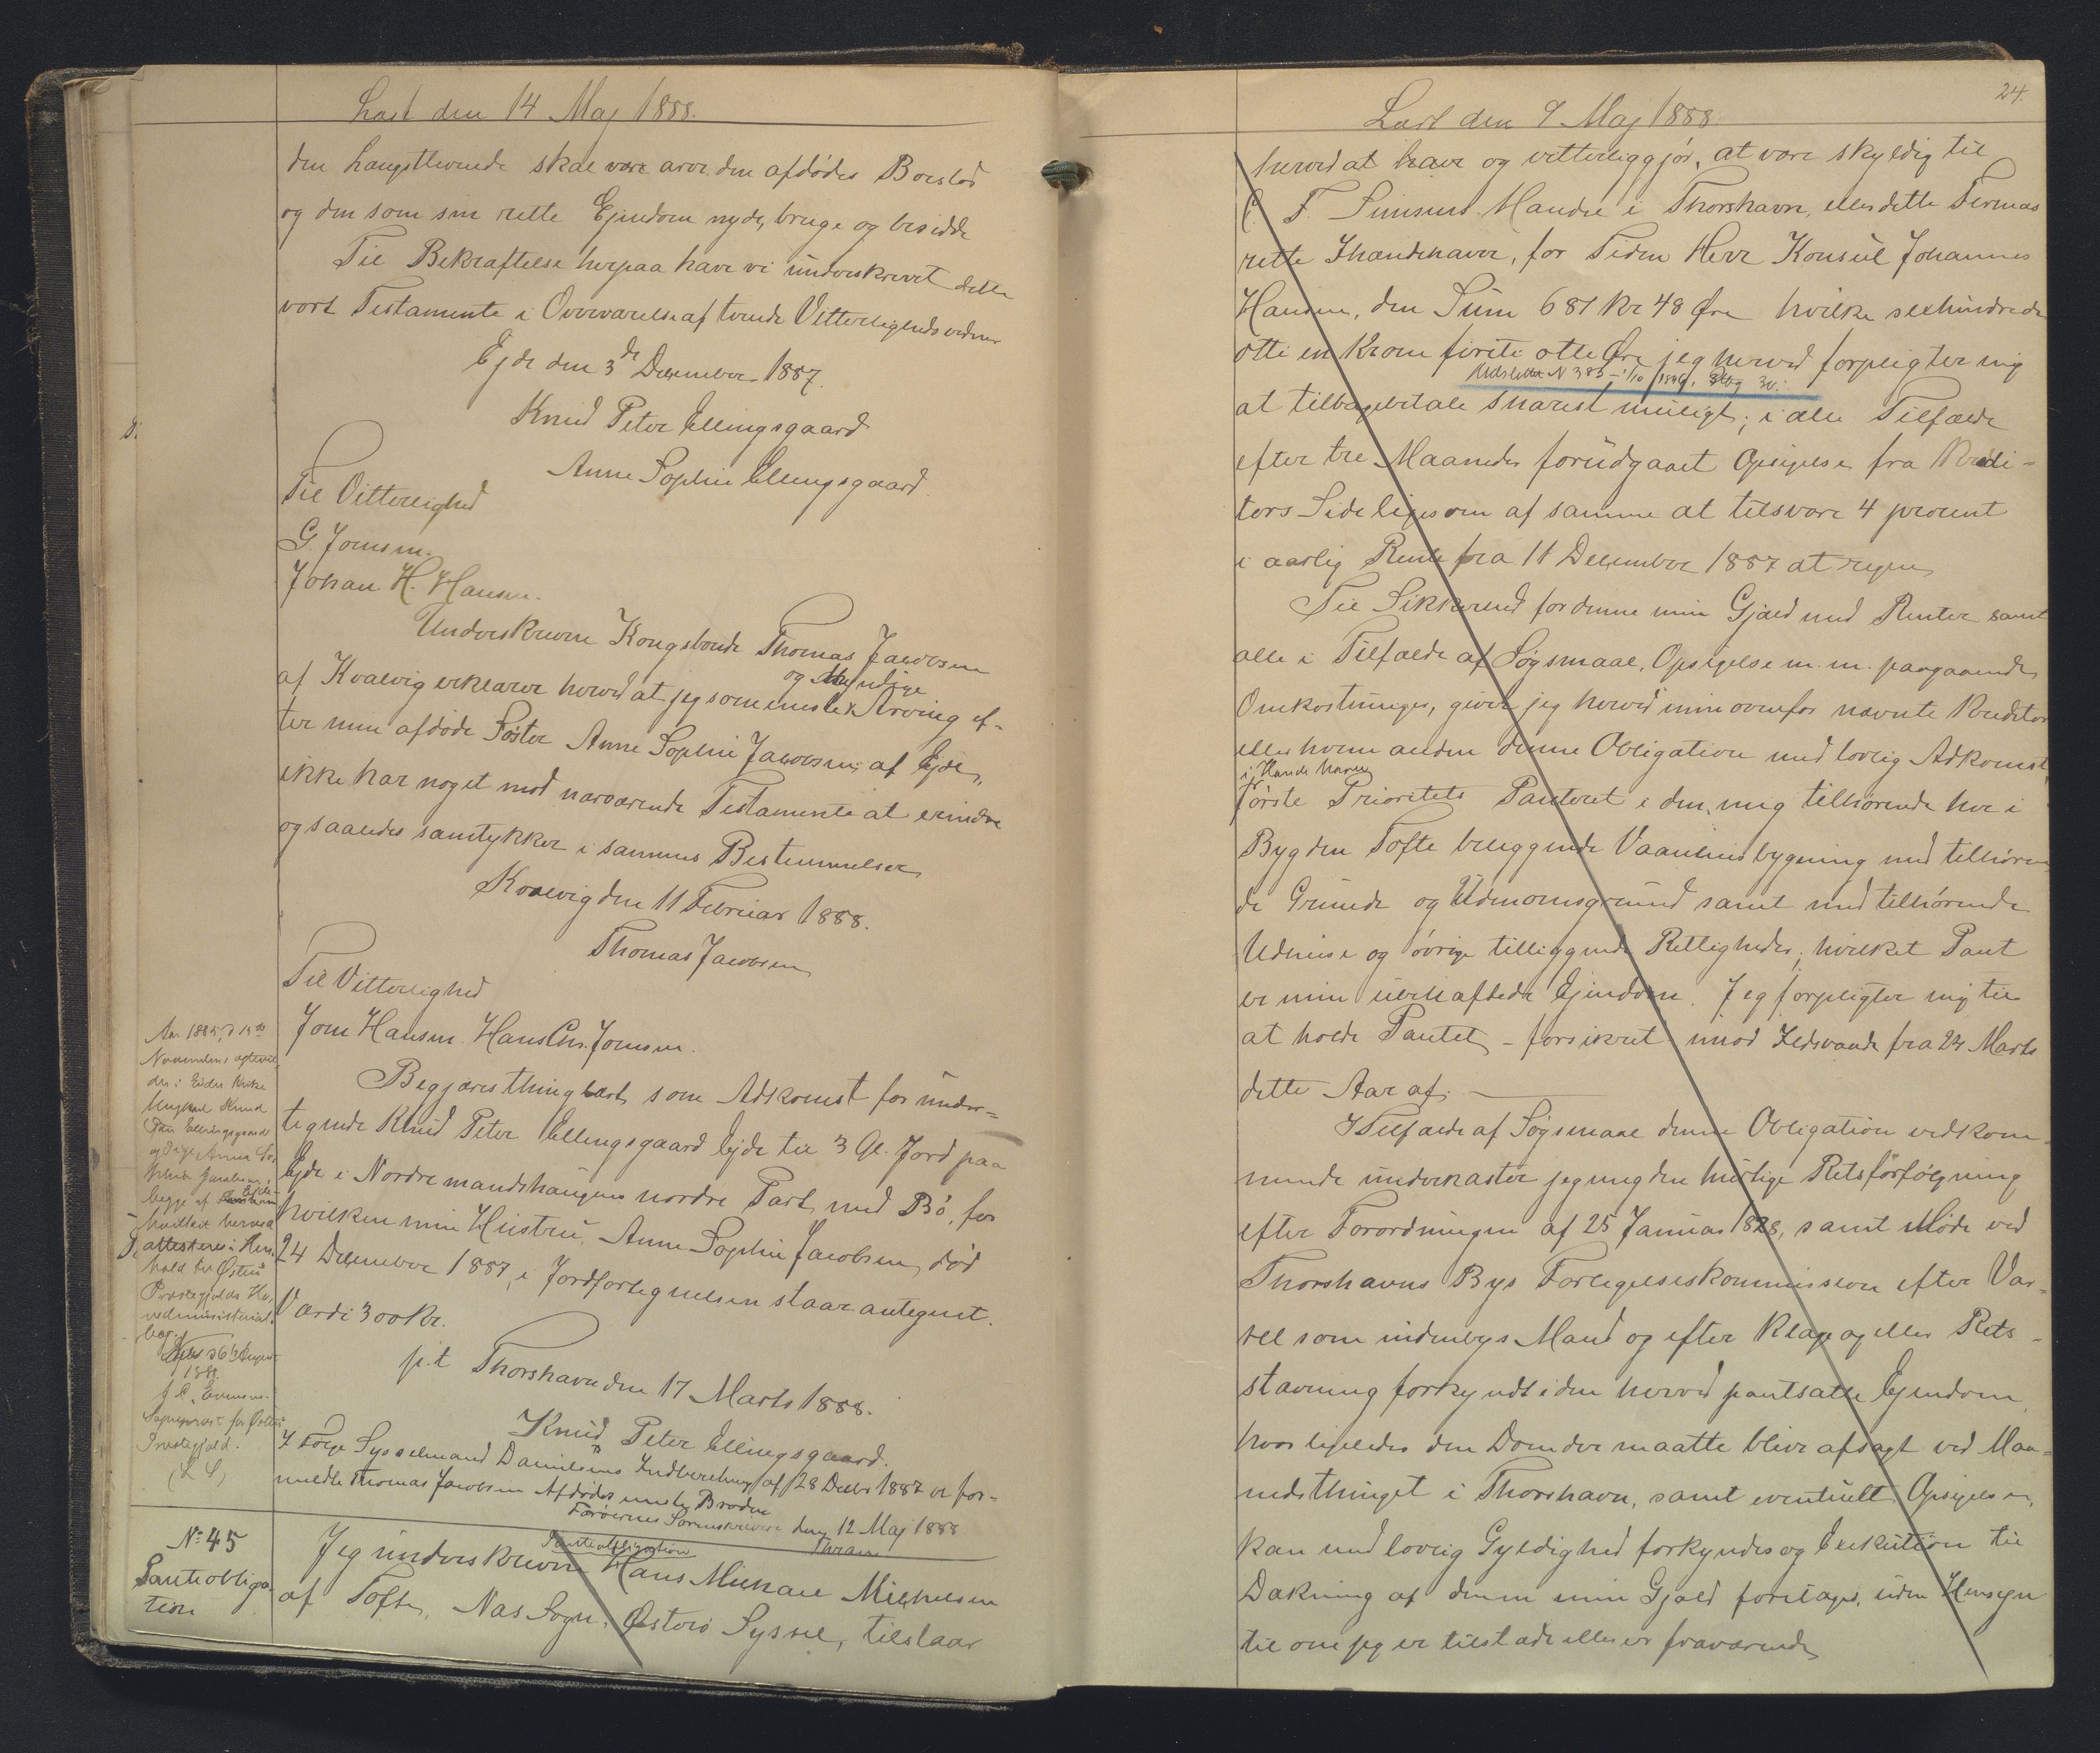 Læst den 14 Maj 1888.
den Længstlevende skal være arve den afdødes Boeslod
og den som sin rette Ejendom nyde, bruge og besidde
Til Bekræftelse herpaa have vi underskrevet dette
vort Testamente i Overværelse af tvende Vitterlighedsvidner
Ejde den 3de December 1887.
Knud Peter Ellingsgaard
Anne Sophie Ellingsgaard.
Til Vitterlighed
G. Joensen.
Johan H. Hansen.
Underskrevne Kongsbonde Thomas Jacobsen
og Myndige
af Kvalvig erklærer herved at jeg som eneste Arving ef-
ter min afdøde Søster Anne Sophie Jacobsen af Ejde,
ikke har noget mod nærværende Testamente at erindre
og saaledes samtykker i sammes Bestemmelser
Kvalvig den 11 Februar 1888.
Thomas Jacobsen
Til Vitterlighed
Joen Hansen. Hans Chr. Joensen.
Begjæres thinglæst som Adkomst for under-
tegnede Knud Peter Ellingsgaard Ejde til 3 Gl. Jord paa
Ejde i Nordre mandshaugens nordre Part med Bø, for
hvilken min Hustru, Anne Sophie Jacobsen, død
24 December 1887, i Jordfortegnelsen staar antegnet.
Værdi 300 Kr.
p.t. Thorshavn den 17 Marts 1888.
Knud Peter Ellingsgaard.
Ifølge Sysselmand Danielsens Indberetning af 28 Decbr 1887 er for-
meldte Thomas Jacobsen Afdødes eneste Broder
Færøernes Sorenskriveri den 12 Maj 1888
Aar 1885, d 15de
Novembers
der i Eides Kirke
Ungkarl Knud
Peter Ellingsgaard
og Pige Anna So-
phie Jacobsen,
begge af Ejde
hvilket herved
attesteres i Hen-
hold til Østerø
Præstegjelds Ho-
vedministerial-
bog.
1888.
J. C. Evensen.
Sognepræst for Østerø
Præstegjeld.
(L S)
No 45
Panteobliga-
tion
Panteobligation
Jeg underskrevne Hans Michael Michelsen
af Tofte, Næs Sogn, Østerø Syssel, tilstaar
24.
Læst den 9 Maj 1888
herved at have og vitterliggjør, at være skyldig til
C. F. Simsens Handel i Thorshavn, eller dette Firmas
rette Ihændehaver, for Tiden Herr Konsul Johannes
Hansen, den Sum 681 Kr 48 Øre hvilke sexhundrede
otti en Krone firti otte Øre jeg herved forpligter mig
Udslettet N 383 - 1/10
at tilbagebetale snarest muligt; i alle Tilfælde
efter tre Maaneders forudgaaet Opsigelse fra Kredi-
tors Side ligesom af samme at tilsvare 4 procent
i aarlig Rente fra 11 December 1887 at regne
Til Sikkerhed for denne min Gjæld med Renter samt
alle i Tilfælde af Søgsmaal, Opsigelse m. m. paagaaende
Omkostninger, giver jeg herved min ovenfor nævnte Kreditor
eller hvem anden denne Obligation med lovlig Adkomst
i Hænde haver
første Prioritets Panteret i den, mig tilhørende her i
Bygden Tofte beliggende Vaaningsbygning med tilhøren-
de Grunde og Udenomsgrund samt med tilhørende
Udhuse og øvrige tilliggende Rettigheder, hvilket Pant
er min ubehæftede Ejendom. Jeg forpligter mig til
at holde Pantet - forsikret - imod Ildsvaade fra 24 Marts
dette Aar af.
I Tilfælde af Søgsmaal denne Obligation vedkom-
mende underkaster jeg mig den hurtige Retsforfølgning
efter Forordningen af 25 Januar 1828, samt Møde ved
Thorshavns Bys Forligelseskommission efter Var-
sel som indenbys Mand og efter Klage og eller Rets-
stævning forkyndt i den herved pantsatte Ejendom
hvor ligeledes den Dom der maatte blive afsagt ved Maa-
nedsthinget i Thorshavn, samt eventuelt Opsigelsen,
kan med lovlig Gyldighed forkyndes og Exekution til
Dækning af denne min Gjæld foretages, uden Hensyn
til om jeg er tilstede eller er fraværende